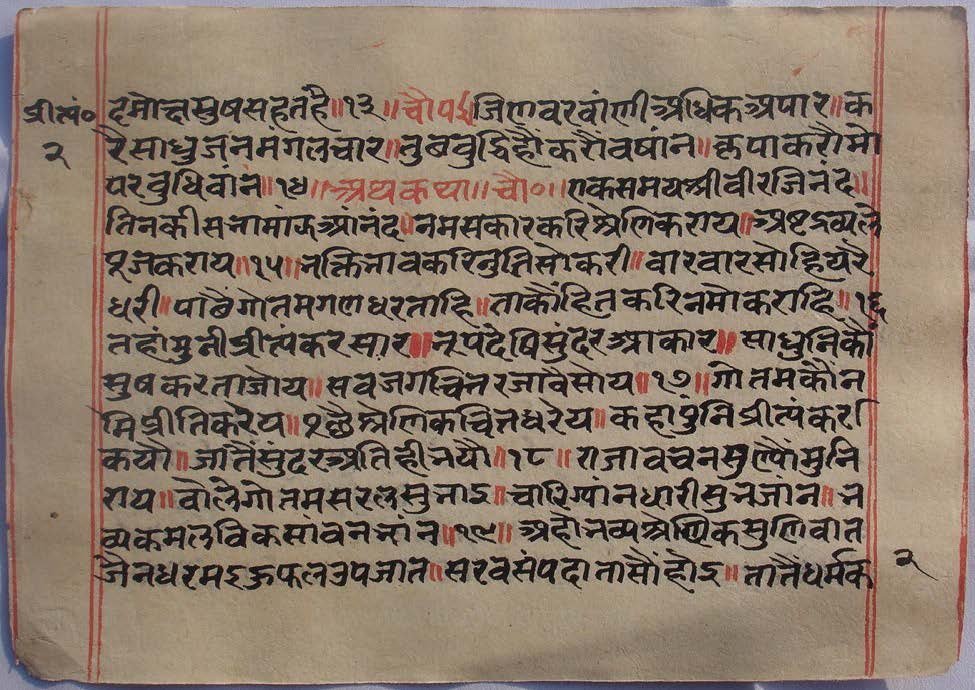 प्रीत्यं० दमोद्मसुषसहतहै॥१३॥चौपई॥जिणवरवांणीअधिकअपार॥क
२ रैसाधुजनमंगलचार॥तुछवुद्धिहौंकरौंवषांन॥कृपाकरौमो
परवुधिवांन॥१४॥अथकथा॥चौ०॥एकसमयश्रीवीरजिनंद॥
तिनकीसभामांऊआंनंद॥नमसकारकरिश्रेणिकराय॥अष्टद्रव्यले
पूजकराय॥१५॥भक्तिभावकरिनुतिसोकरी॥वारवारसोहियरै
धरी॥पाछैंगोतमगणधरताहि॥ताकौंहितकरिनमोकराहि॥१६
तहांमुनीप्रीत्यंकरसार॥नूपदेषिसुंदरआकार॥साधुनिकौं
सुषकरताजोय॥सवजगच्चितरजावैसोय॥१७॥गोतमकौंन
मिप्रीतिकरेय॥पूछैश्रेणिकचितधरेय॥कहापुंनिप्रीत्यंकर
कयो॥जातैंसुंदरअतिहीनयौ॥१८॥राजावचनसुण्यौंमुनि
राय॥वोलैगोतमसरलसुभाइ॥चारिग्यांनधारीसुभजांन॥भ
व्यकमलविकसावनभांन॥१९॥अहोभव्यश्रेणिकसुणिवात
जैनधरमइऊफलउपजात॥सरवसंपदातासौंहोइ॥तातैंधर्मक २